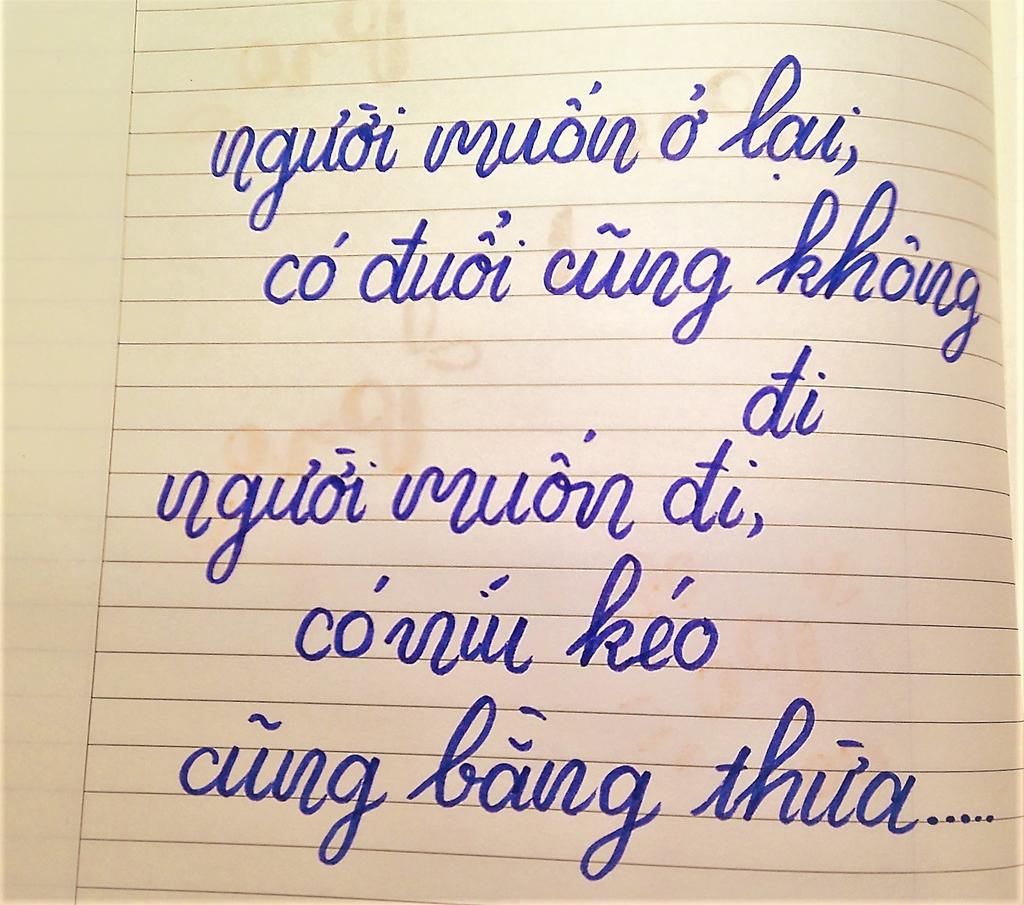 người muốn ở lại,
có đuổi cũng không
đi
người muốn đi,
có níu kéo
cũng bằng thừa.....